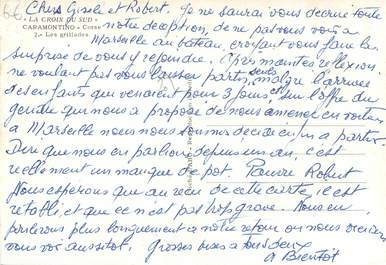 Chers Gisèle et Robert. Je ne saurai vous décrire toute
"LA CROIX DU SUD"
CARAMONTINO - Corse
2.- Les grillades
notre déception, de ne pas vous voir à
Marseille au bateau, croyant vous faire la
surprise de vous y rejoindre. Après maintes réflexion
ne voulant pas vous laisser partir seuls, malgré l'arrivée
des enfants qui venaient pour 3 jours, et sur l'offre du
gendre qui nous a proposé de nous amener en voiture
à Marseille nous nous sommes décidés à partir.
Dire que nous en parlions depuis un an, c'est
réellement un manque de pot. Pauvre Robert
Nous espérons que au reçu de cette carte, il est
rétabli, et que ce n'est pas trop grave. Nous en
parlerons plus longuement à notre retour ou nous irons
vous voir aussitôt. Grosses bises à tous deux
A Bientôt